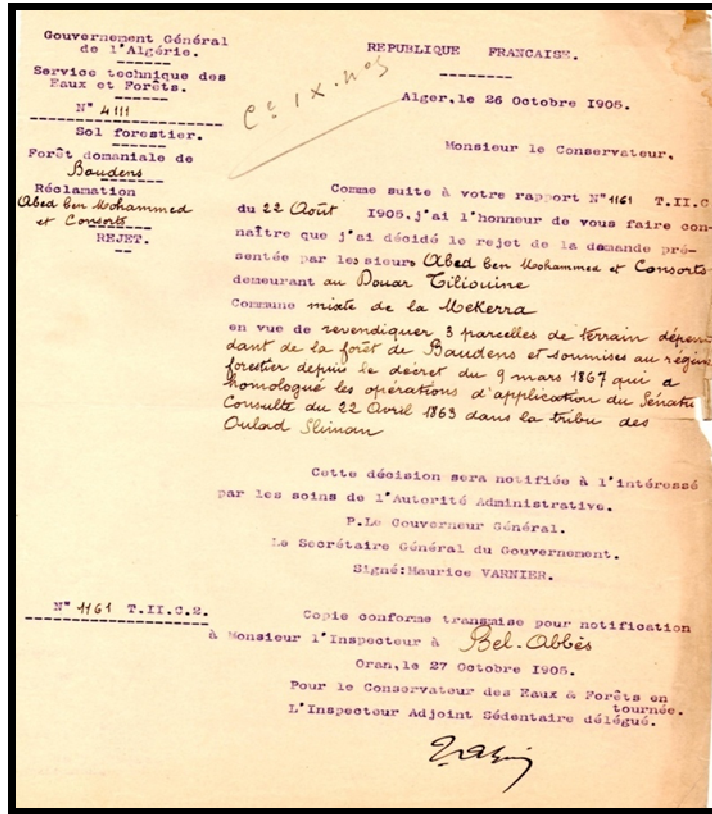 Gouvernement Général
de l'Algérie.
Service technique des
Eaux et Forêts.
N° 4111
Sol forestier.
Forêt domaniale de
Baudens
Réclamation
Abed ben Mohammed
et Consorts
REJET.
REPUBLIQUE FRANCAISE.
C° IX. n° 3
Alger, le 26 Octobre 1905.
Monsieur le Conservateur.
Comme suite à votre rapport N° 1161 T.II.C
du 22 Août 1905. j'ai l'honneur de vous faire con-
naître que j'ai décidé le rejet de la demande pré-
sentée par les sieurs Abed ben Mohammed et Consorts
demeurant au Douar Tiliouine
Commune mixte de la Mekerra
en vue de revendiquer 3 parcelles de terrain dépen
dant de la forêt de Baudens et soumises au régime
forestier depuis le décret du 9 mars 1867 qui a
homologué les opérations d'application du Sénatus
Consulte du 22 Avril 1863 dans la tribu des
Oulad Sliman
Cette décision sera notifiée à l'intéressé
par les soins de l'Autorité Administrative.
P.Le Gouverneur Général.
Le Secrétaire Général du Gouvernement.
Signé:Maurice VARNIER.
N° 1161 T.II.C.2.
Copie conforme transmise pour notification
à Monsieur l'Inspecteur à Bel-Abbès
Oran, le 27 Octobre 1905.
Pour le Conservateur des Eaux & Forêts en
tournée.
L'Inspecteur Adjoint Sédentaire délégué.